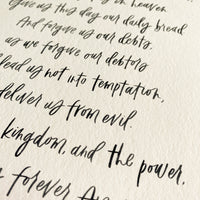 in heaven
give us this day our daily bread
And forgive us our debts,
as we forgive our debtors
lead us not into temptation,
deliver us from evil.
kingdom, and the power,
forever